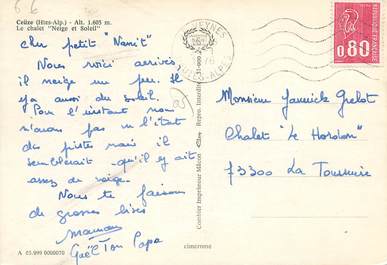 Ceüze (Htes-Alp.) - Alt. 1.605 m.
Le chalet "Neige et Soleil"
cher petit "Nanit"
Nous voici arrivés,
il neige un peu. Il
y a aussi du soleil.
Pour l'instant nous
n'avons pas vu l'état
des pistes mais il
semblerait qu'il y ait
assez de neige.
Nous te faisons
de grosses bises
maman
Gaël Ton Papa
A 05.999 0000070
Combier Imprimeur Mâcon
Repro. Interdite
cimcrome
VEYNES
HTES-ALPES
0,80
Monsieur Yannick Grelot
Chalet "Le
73300 La Toussuire